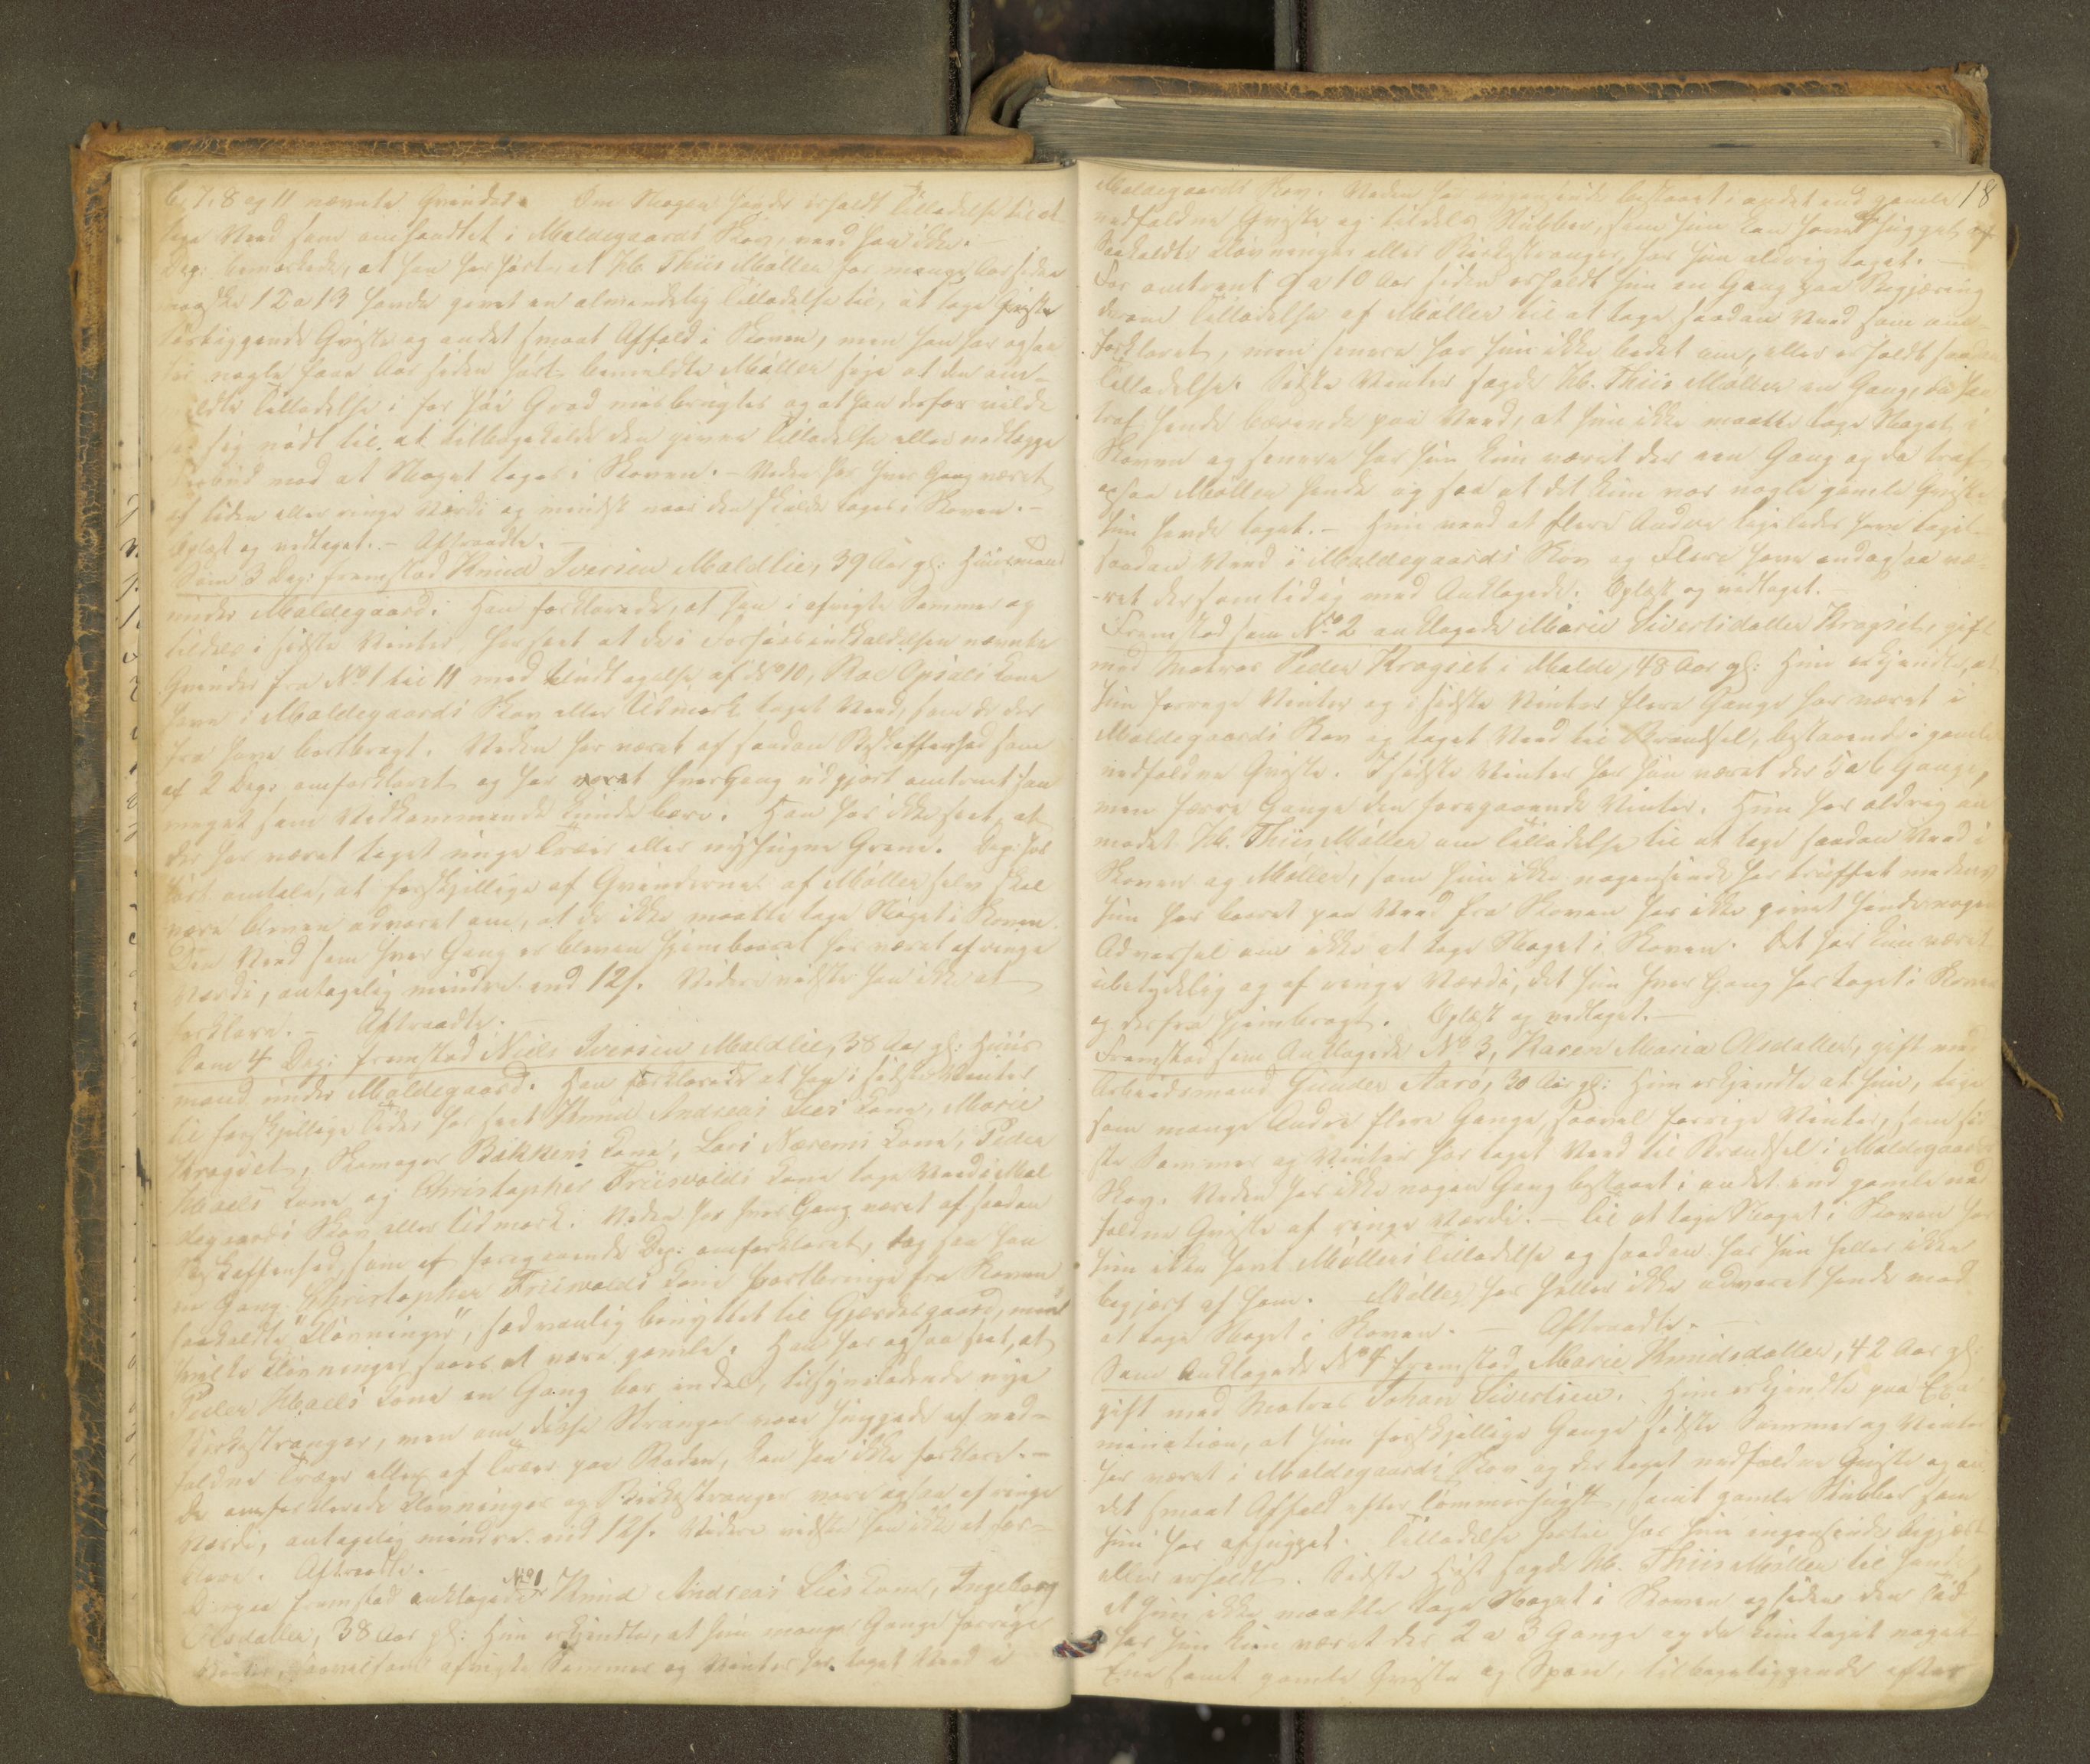 6, 7, 8 og 11 nævnte Qvinder. Om Nogen havde erholdt Tilladelse til at
tage Veed som omhandlet i Maldegaards Skov, veed han ikke. -
Dep: bemærkede, at han har hørt, at Hr. Thiis Møller for mange Aar siden
maaske 12 a 13 havde givet en almindelig Tilladelse til, at tage
liggende Qviste og andet smaat Affald i Skoven, men han har ogsaa
for nogle faae Aar siden hørt bemeldte Møller sige at den om-
meldte Tilladelse i for høi Grad misbrugtes og at han derfor vilde
see sig nødt til at tilbagekalde den givne Tilladelse eller nedlægge
Forbud mod at Noget toges i Skoven. - Veden har hver Gang været
af liden eller ringe Værdi og mindst naar den skulde tages i Skoven. -
Oplæst og vedtaget. - Aftraadte. -
Som 3 Dep: fremstod Knud Iversen Maldlie, 39 Aar gl: Huusmand
under Maldegaard. Han forklarede, at han i afvigte Sommer og
tildels i sidste Vinter har seet at de i Forhørsindkaldelsen nævnte
Qvinder fra No 1 til 11 med Undtagelse af No 10, Roe Opsals Kone
have i Maldegaards Skov eller Udmark taget Veed, som de der
fra have bortbragt. Veden har været af saadan Beskaffenhed som
af 2 Dep: omforklaret og har været hver Gang udgjort omtrent saa
meget som Vedkommende kunde bære. Han har ikke seet, at
der har været taget unge Træer eller nyhugne Grene. Dep: har
hørt omtale, at forskjellige af Qvinderne af Møller selv skal
være bleven advaret om, at de ikke maatte tage Noget i Skoven.
Den Veed som hver Gang er bleven hjembaaret har været af ringe
Værdi, antagelig mindre end 12 s. Videre vidste han ikke at
forklare. - Aftraadte. -
Som 4 Dep: fremstod Niels Iversen Maldlie, 38 Aar gl: Huus-
mand under Maldegaard. Han forklarede at han i sidste Vinter
til forskjellige Tider har seet Knud Andreas Lies Kone, Marie
Krogset, Skomager Bakkens Kone, Lars Nærems Kone, Peder
Hoels Kone og Christopher Friisvolds Kone tage Veed i Mal
degaards Skov eller Udmark. Veden har hver Gang været af saadan
Beskaffenhed, som af foregaaende Dep: omforklaret, dog saa han
en Gang Christopher Friisvolds Kone hortbringe fra Skoven
saakaldte "Kløvninger", sædvanlig benyttet til Gjærdesgaard,
hvilke Kløvninger saaes at være gamle. Han har ogsaa seet, at
Peder Hoels Kone en Gang bar endel, tilsyneladende nye
Birkestranger, men om disse Stranger vare huggede af ned-
faldne Træer eller af Træer paa Roden, kan han ikke forklare. -
De omforklarede Kløvninger og Birkestranger vare ogsaa af ringe
Værdi, antagelig mindre end 12 s. Videre vidste han ikke at for-
klare. Aftraadte. -
Derpaa fremstod Anklagede No 1 Knud Andreas Lies Kone, Ingeborg
Olsdatter, 38 Aar gl: Hun erkjendte, at hun mange Gange forrige
Vinter, saavelsom afvigte Sommer og Vinter har taget Veed i
18
Maldegaards Skov. Veden har ingensinde bestaaet i andet end gamle
nedfaldne Qviste og tildels Stubber, som hun kan have hugget af
Saakaldte Kløvninger eller Birkestranger, har hun aldrig taget. -
For omtrent 9 a 10 Aar siden erholdt hun en Gang paa Begjæring
derom Tilladelse af Møller til at tage saadan Veed som om-
forklaret, men senere har hun ikke bedet om, eller erholdt saadan
Tilladelse. Sidste Vinter sagde Hr. Thiis Møller en Gang, da han
traf hende bærende paa Veed, at hun ikke maatte tage Noget i
Skoven og senere har hun kun været der een Gang og da traf
ogsaa Møller hende og saa at det kun var nogle gamle Qviste
hun havde taget. - Hun veed at flere Andre ligeledes have taget
saadan Veed i Maldegaards Skov og Flere have endogsaa væ-
-ret der samtidig med Anklagede. Oplæst og vedtaget. -
Fremstod som No 2 anklagede Marie Sivertsdatter Krogset, gift
med Matros Peder Krogset i Molde, 48 Aar gl: Hun erkjendte, at
hun forrige Vinter og i sidste Vinter flere Gange har været i
Maldegaards Skov og taget Veed til Brændsel, bestaaende i gamle
nedfaldne Qviste. I sidste Vinter har hun været der 5 a 6 Gange,
men færre Gange den foregaaende Vinter. Hun har aldrig an
modet Hr. Thiis Møller om Tilladelse til at tage saadan Veed i
Skoven og Møller, som hun ikke nogensinde har truffet medens
hun har baaret paa Veed fra Skoven har ikke givet hende nogen
Advarsel om ikke at tage Noget i Skoven. Det har kun været
ubetydelig og af ringe Værdi, det hun hver Gang har taget i Skoven
og derfra hjembragt. Oplæst og vedtaget. -
Fremstod som Anklagede No 3, Karen Maria Olsdatter, gift med
Arbeidsmand Gunder Aarø, 30 Aar gl: Hun erkjendte at hun, lige
som mange Andre flere Gange, saavel forrige Vinter, som sid
ste Sommer og Vinter har taget Veed til Brændsel i Maldegaards
Skov. Veden har ikke nogen Gang bestaaet i andet end gamle ned
faldne Qviste af ringe Værdi. - Til at tage Noget i Skoven har
hun ikke havt Møllers Tilladelse og saadan har hun heller ikke
begjært af ham. Møller har heller ikke advaret hende mod
at tage Noget i Skoven. - Aftraadte. -
Som Anklagede No 4 fremstod Marie Knudsdatter, 42 Aar gl:
gift med Matros Johan Sivertsen. Hun erkjendte paa Exa-
mination, at hun forskjellige Gange sidste Sommer og Vinter
har været i Maldegaards Skov og der taget nedfaldne Qviste og an
det smaat Affald efter Tømmerhugst, samt gamle Stubber som
hun har afhugget. Tilladelse hertil har hun ingensinde begjært
eller erholdt. Sidste Høst sagde Hr. Thiis Møller til hende,
at hun ikke maatte tage Noget i Skoven og siden den Tid
har hun kun været der 2 a 3 Gange og da kun taget noget
Ener samt gamle Qviste og Spaan, tilbageliggende efter